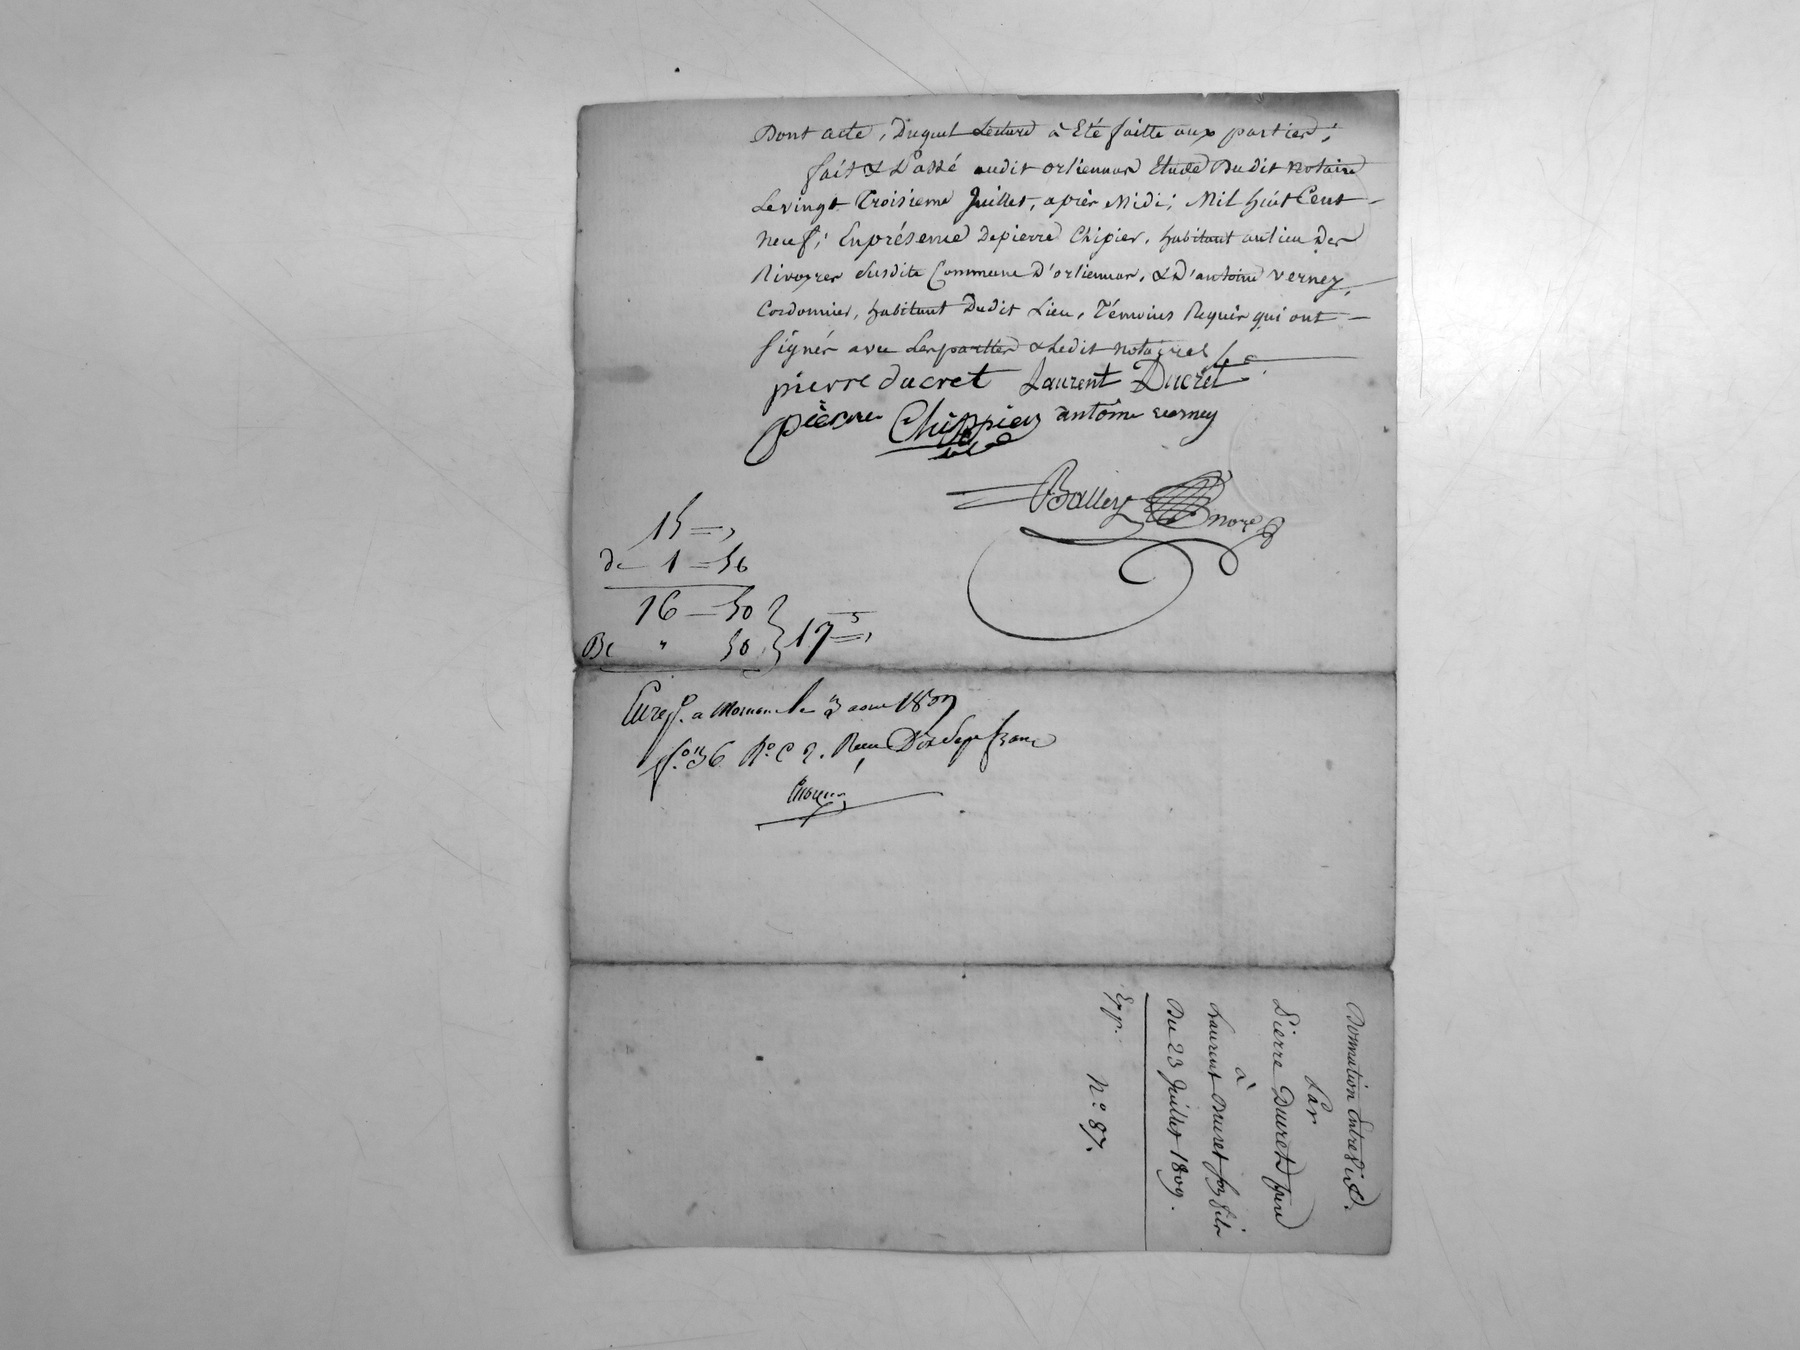 Dont acte, Duquel Lecture à Eté faitte aux parties;
fait & Passé audit orliennas Etude Dudit Notaire
Le vingt Troisieme Juillet, après Midi; Mil huit Cent
neuf; En présence De pierre Chipier, habitant au lieu Des
Rivoyres susdite Commune D'orliennas, & D'antoine Verney,
Cordonnier, habitant Dudit Lieu, Témoins Requis qui ont
signés avec Les parties & Ledit notaire
pierre ducret Laurent Ducret
pierre Chippier antoine verney
Balley nore
15 = ,
de 1 = 50
16 = 50
Be " 50 } 17 =
Enregé. a Mornant le 3 aout 1809
fo. 36 Ro. C 2. Recu Dix sept franc
Donnation Entrevifs.
Par
Pierre Ducret pere
à
Laurent Ducret son fils
Du 23 Juillet 1809.
Exp. No. 87.